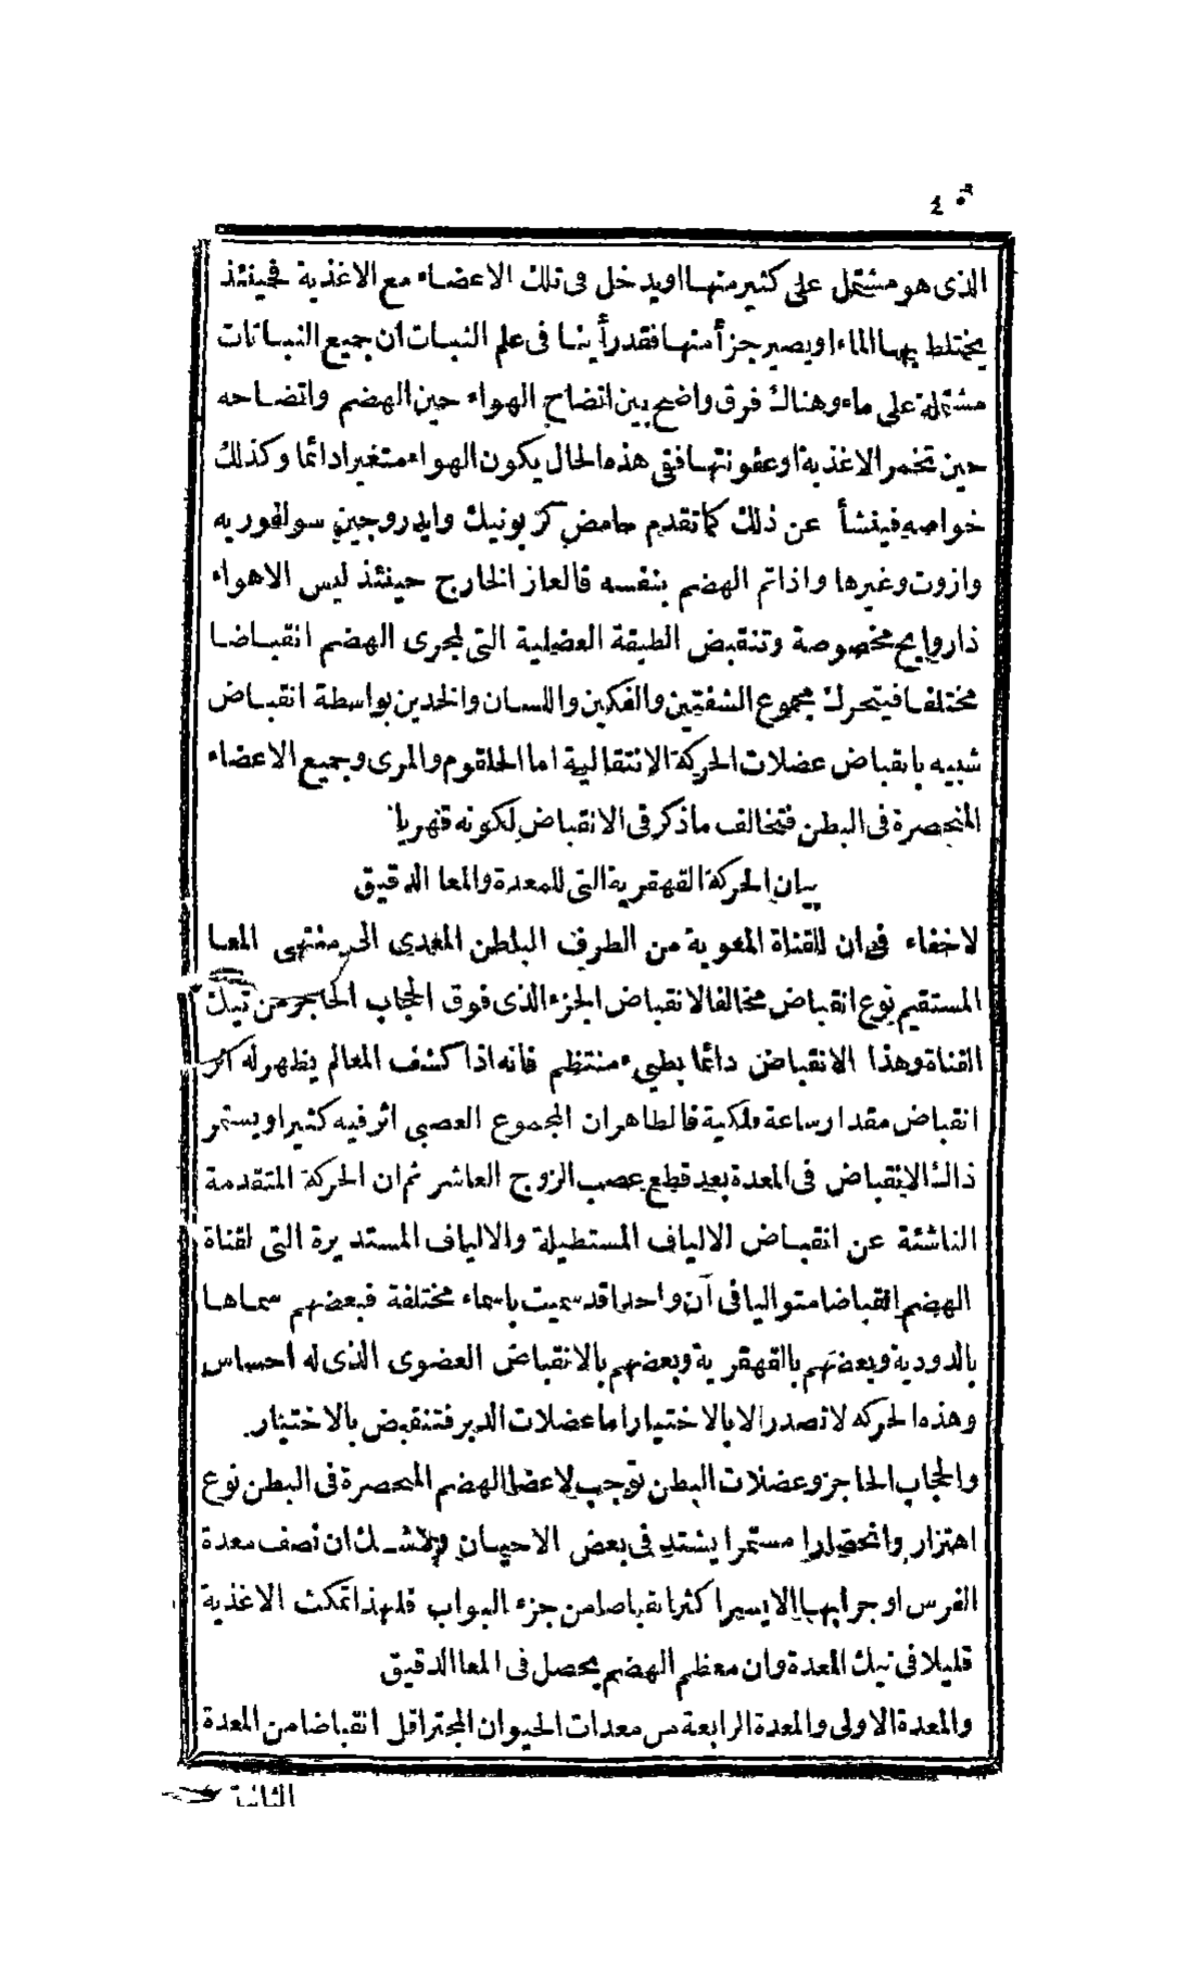 ٤٠
الذى هو مشتمل على كثير منها او يدخل فى تلك الاعضاء مع الاغذية فحينئذ
يختلط بها الماء او يصير جزأ منها فقد رأينا فى علم النبات ان جميع النباتات
مشتملة على ماء وهناك فرق واضح بين اتضاح الهواء حين الهضم واتضاحه
حين تخمر الاغذية او عفونتها ففى هذه الحال يكون الهواء متغيرا دائما وكذلك
خواصه فينشأ عن ذلك كما تقدم حامض كربونيك وايدروجين سولفوريه
وازوت وغيرها واذا تم الهضم بنفسه فالغاز الخارج حينئذ ليس الا هواء
ذا روايح مخصوصة وتنقبض الطبقة العضلية التى لمجرى الهضم انقباضا
مختلفا فيتحرك مجموع الشفتين والفكين واللسان والخدين بواسطة انقباض
شبيه بانقباض عضلات الحركة الانتقالية اما الحلقوم والمرى وجميع الاعضاء
المنحصرة فى البطن فتخالف ما ذكر فى الانقباض لكونه قهريا
بيان الحركة القهقرية التى للمعدة والمعا الدقيق
لا خفاء فى ان للقناة المعوية من الطرف البلطن المعدى الى منتهى المعا
المستقيم نوع انقباض مخالفا لانقباض الجزء الذى فوق الحجاب الحاجز من تيك
القناة وهذا الانقباض دائما بطىء منتظم فانه اذا كشف المعالم يظهر له اثر
انقباض مقدار ساعة فلكية فالظاهر ان المجموع العصبى اثر فيه كثيرا ويستمر
ذالك الانقباض فى المعدة بعد قطع عصب الزوج العاشر ثم ان الحركة المتقدمة
الناشئة عن انقباض الالياف المستطيلة والالياف المستديرة التى لقناة
الهضم انقباضا متواليا فى آن واحد قد سميت باسماء مختلفة فبعضهم سماها
بالدودية وبعضهم بالقهقرية وبعضهم بالانقباض العضوى الذى له احساس
وهذه الحركه لا تصدر الا بالاختيار اما عضلات الدبر فتنقبض بالاختيار
والحجاب الحاجز وعضلات البطن توجب لاعضا الهضم المنحصرة فى البطن نوع
اهتزاز وانحصارا مستمرا يشتد فى بعض الاحيان ولا شك ان نصف معدة
الفرس او جرابها الايسر اكثر انقباضا من جزء البواب فلهذا تمكث الاغذية
قليلا فى تيك المعدة وان معظم الهضم يحصل فى المعا الدقيق
والمعدة الاولى والمعدة الرابعة من معدات الحيوان المجتر اقل انقباضا من المعدة
الثانية